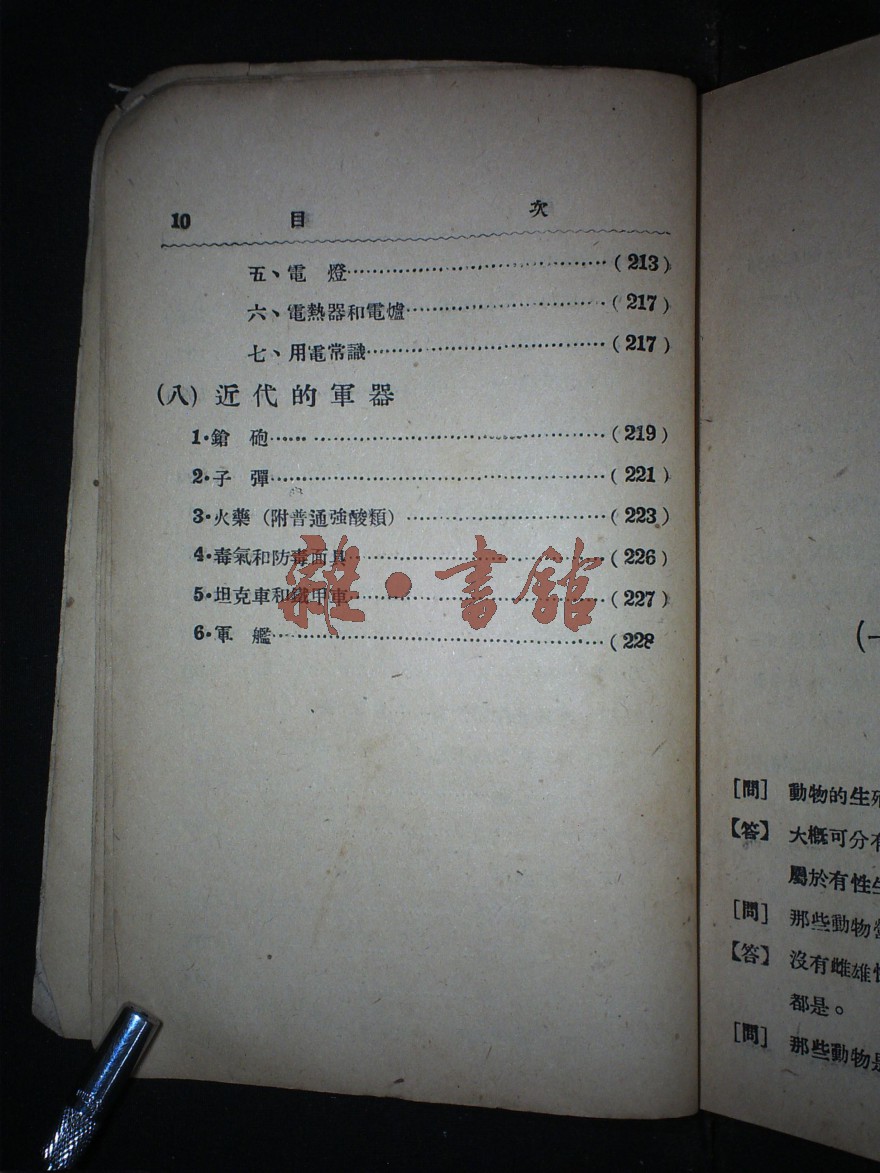 10 目 次
五、電 燈……………………………(213)
六、電熱器和電爐……………………(217)
七、用電常識…………………………(217)
(八) 近代的軍器
1·鎗 砲……………………………(219)
2·子 彈……………………………(221)
3·火藥(附普通強酸類)………………(223)
4·毒氣和防毒面具……………………(226)
5·坦克車和鐵甲車……………………(227)
6·軍 艦……………………………(228
雜·書館
(一
[問] 動物的生殖
【答】 大概可分有
屬於有性生
[問] 那些動物
【答】 沒有雌雄
都是。
[問] 那些動物是